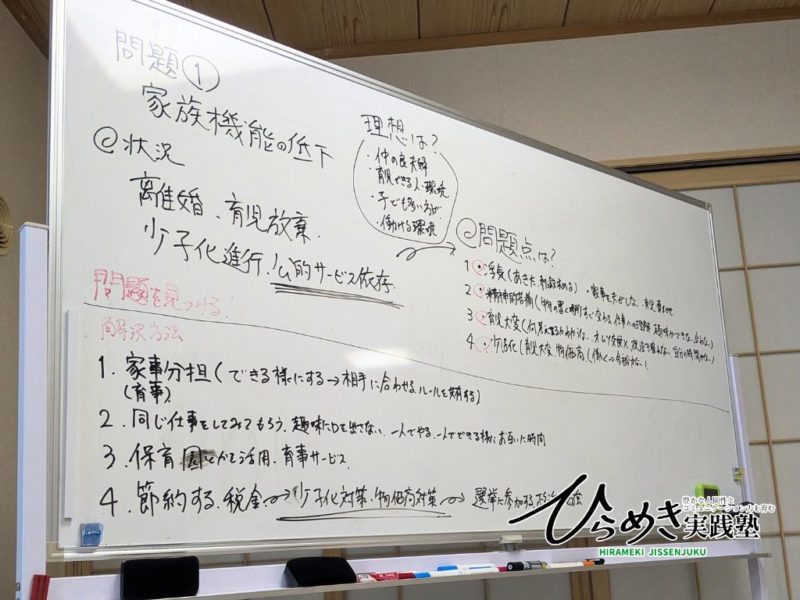 問題①
家族機能の低下
@状況
離婚、育児放棄、
少子化進行、公的サービス依存
理想は?
・仲の良夫婦
・育児できる人・環境
・子ども多い方が
・働ける環境
@問題点は?
1 浮気(あきた、刺激求める)・家事
2 精神的苦痛(
3 育児大変(
4 少子化(育児大変、物価高(働く
問題を見つける!
解決方法
1. 家事分担(できる様にする→相手に合わせる、ルールを共有する)
(育事)
2. 同じ仕事をしてみてもらう、趣味に口を出さない、一人でやる、一人でできる様に、お互いに時間
3. 保育園とか活用、育事サービス
4. 節約する、税金→少子化対策・物価高対策→選挙に参加する
ひらめき実践塾
豊かな人間性と
コミュニケーション力を育む
HIRAMEKI JISSENJUKU